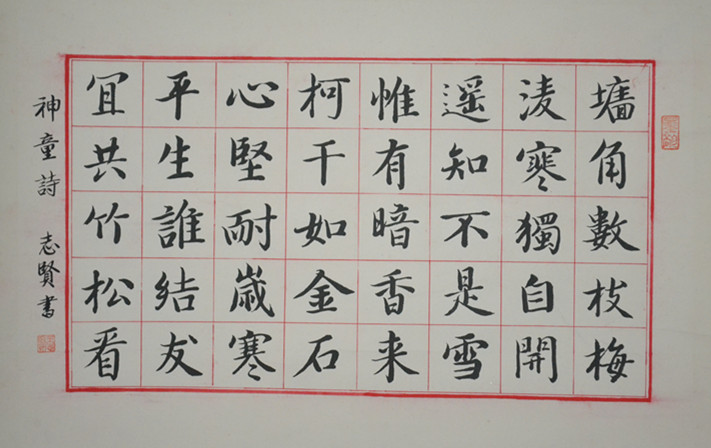 墻角數枝梅
淩寒獨自開
遥知不是雪
惟有暗香来
柯干如金石
心堅耐嵗寒
平生誰結友
冝共竹松看
神童詩 志賢書